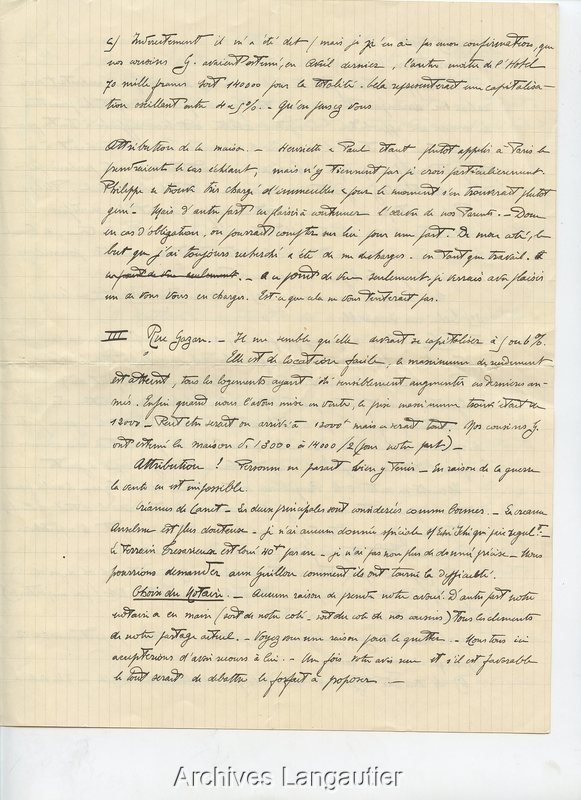 c) Indirectement il m'a été dit (mais je n'en ai pas encore confirmation, que
nos cousins G. avaient estimé, en avril dernier, l'autre moitié de l'Hotel
70 mille francs soit 140000 pour la totalité. Cela représenterait une capitalisa-
tion oscillant entre 4 et 5%. - Qu'en pensez vous
Attribution de la maison. - Henriette et Paul étant plutot appelés à Paris la
prendraient le cas échéant, mais n'y tiennent pas je crois particulièrement.
Philippe se trouve très chargé d'immeubles et pour le moment s'en trouverait plutot
gêné - Mais d'autre part se plairait à continuer l'œuvre de nos Parents. - Donc
en cas d'obligation, on pourrait compter sur lui pour une part. De mon coté, le
but que j'ai toujours recherché a été de me décharger. en tant que travail.
au point de vue seulement. - A ce point de vue seulement je verrais avec plaisir
un de vous s'en charger. Est-ce que cela ne vous tenterait pas.
III Rue Gazan. - Il me semble qu'elle devrait se capitaliser à 5 ou 6%.
Elle est de location facile, le maximum de rendement
est atteint, tous les logements ayant été sensiblement augmentés ces dernières an-
nées. Enfin quand nous l'avons mise en vente, le prix maximum trouvé était de
12000 - Peut être serait on arrivé à 13000 mais ce serait tout. Nos cousins G.
ont estimé la maison de 13000 à 14000 /2 (pour notre part) -
Attribution ! Personne ne parait bien y tenir - En raison de la guerre
la vente en est impossible.
Créances de Canet - Les deux principales sont considérées comme bonnes. - La créance
Anselme est plus douteuse - je n'ai aucune donnée spéciale
le terrain est loué 40f par an - je n'ai pas non plus de donnée précise - Nous
pourrions demander aux Guillon comment ils ont tourné la difficulté.
Choix du Notaire. - Aucune raison de prendre notre avoué. D'autre part notre
notaire a en main (soit de notre coté, soit du coté de nos cousins) tous les éléments
de notre partage actuel. - Voyez vous une raison pour le quitter. - Nous tous ici
accepterions d'avoir recours à lui. - Une fois votre avis reçu et s'il est favorable
le tout serait de débattre le forfait à proposer -
Archives Langautier